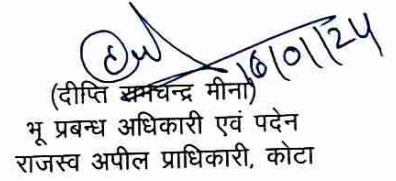 16/01/24
(दीप्ति रामचन्द्र मीना)
भू प्रबन्ध अधिकारी एवं पदेन
राजस्व अपील प्राधिकारी, कोटा